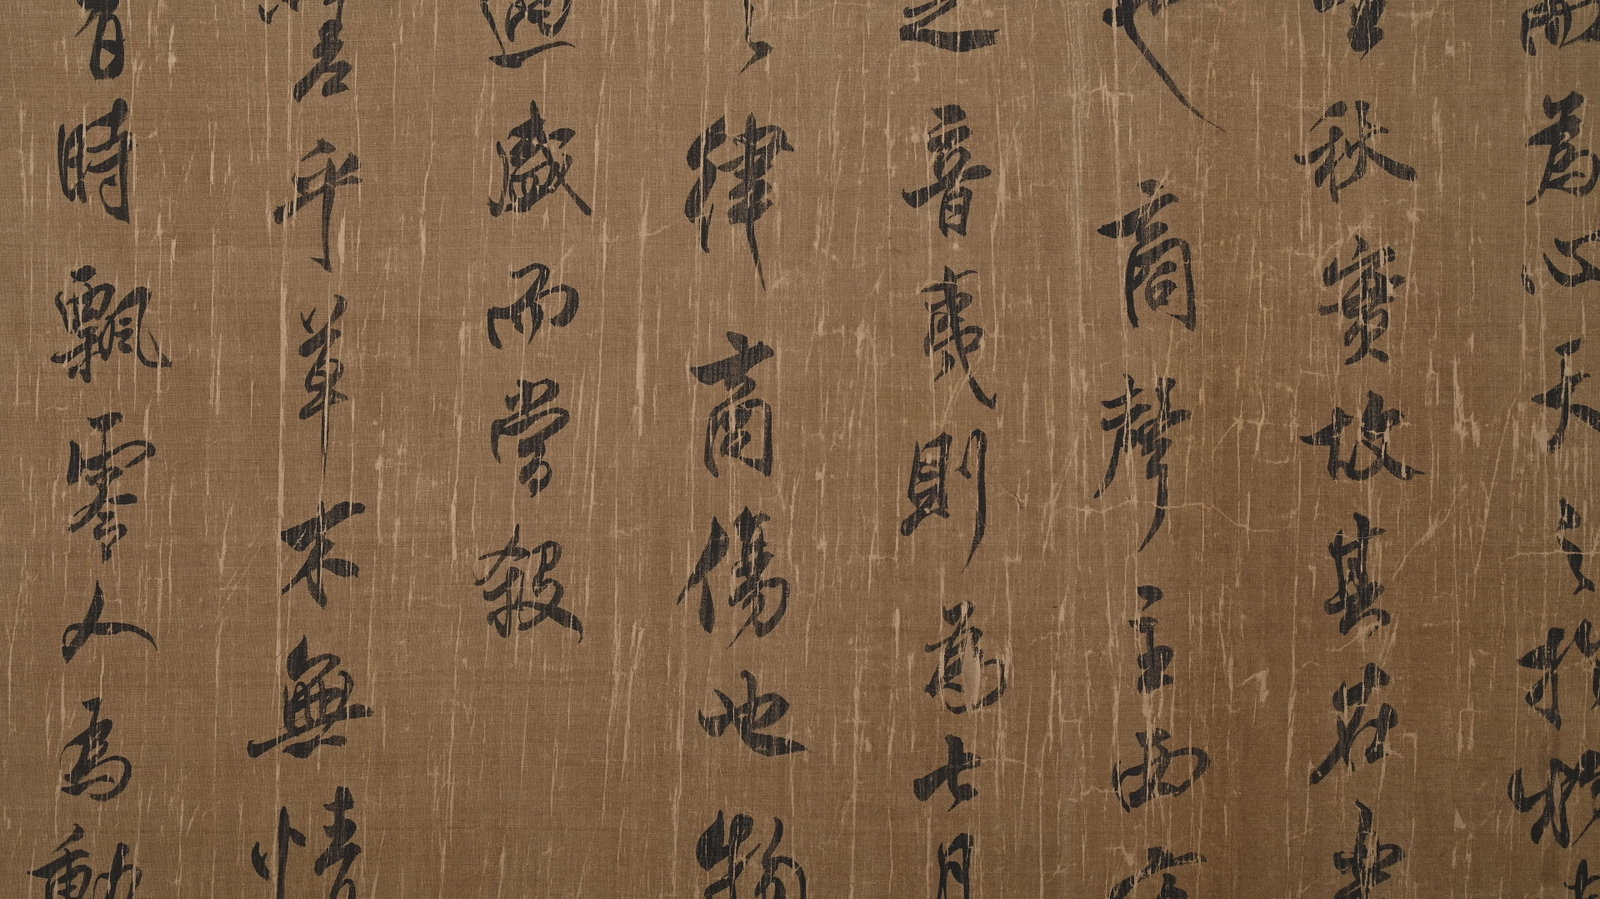 而為心天之於物
生秋實故其在樂
也商聲主西方
之音夷則為七月
之律商傷也物
過盛而當殺
嗟乎草木無情
有時飄零人為動